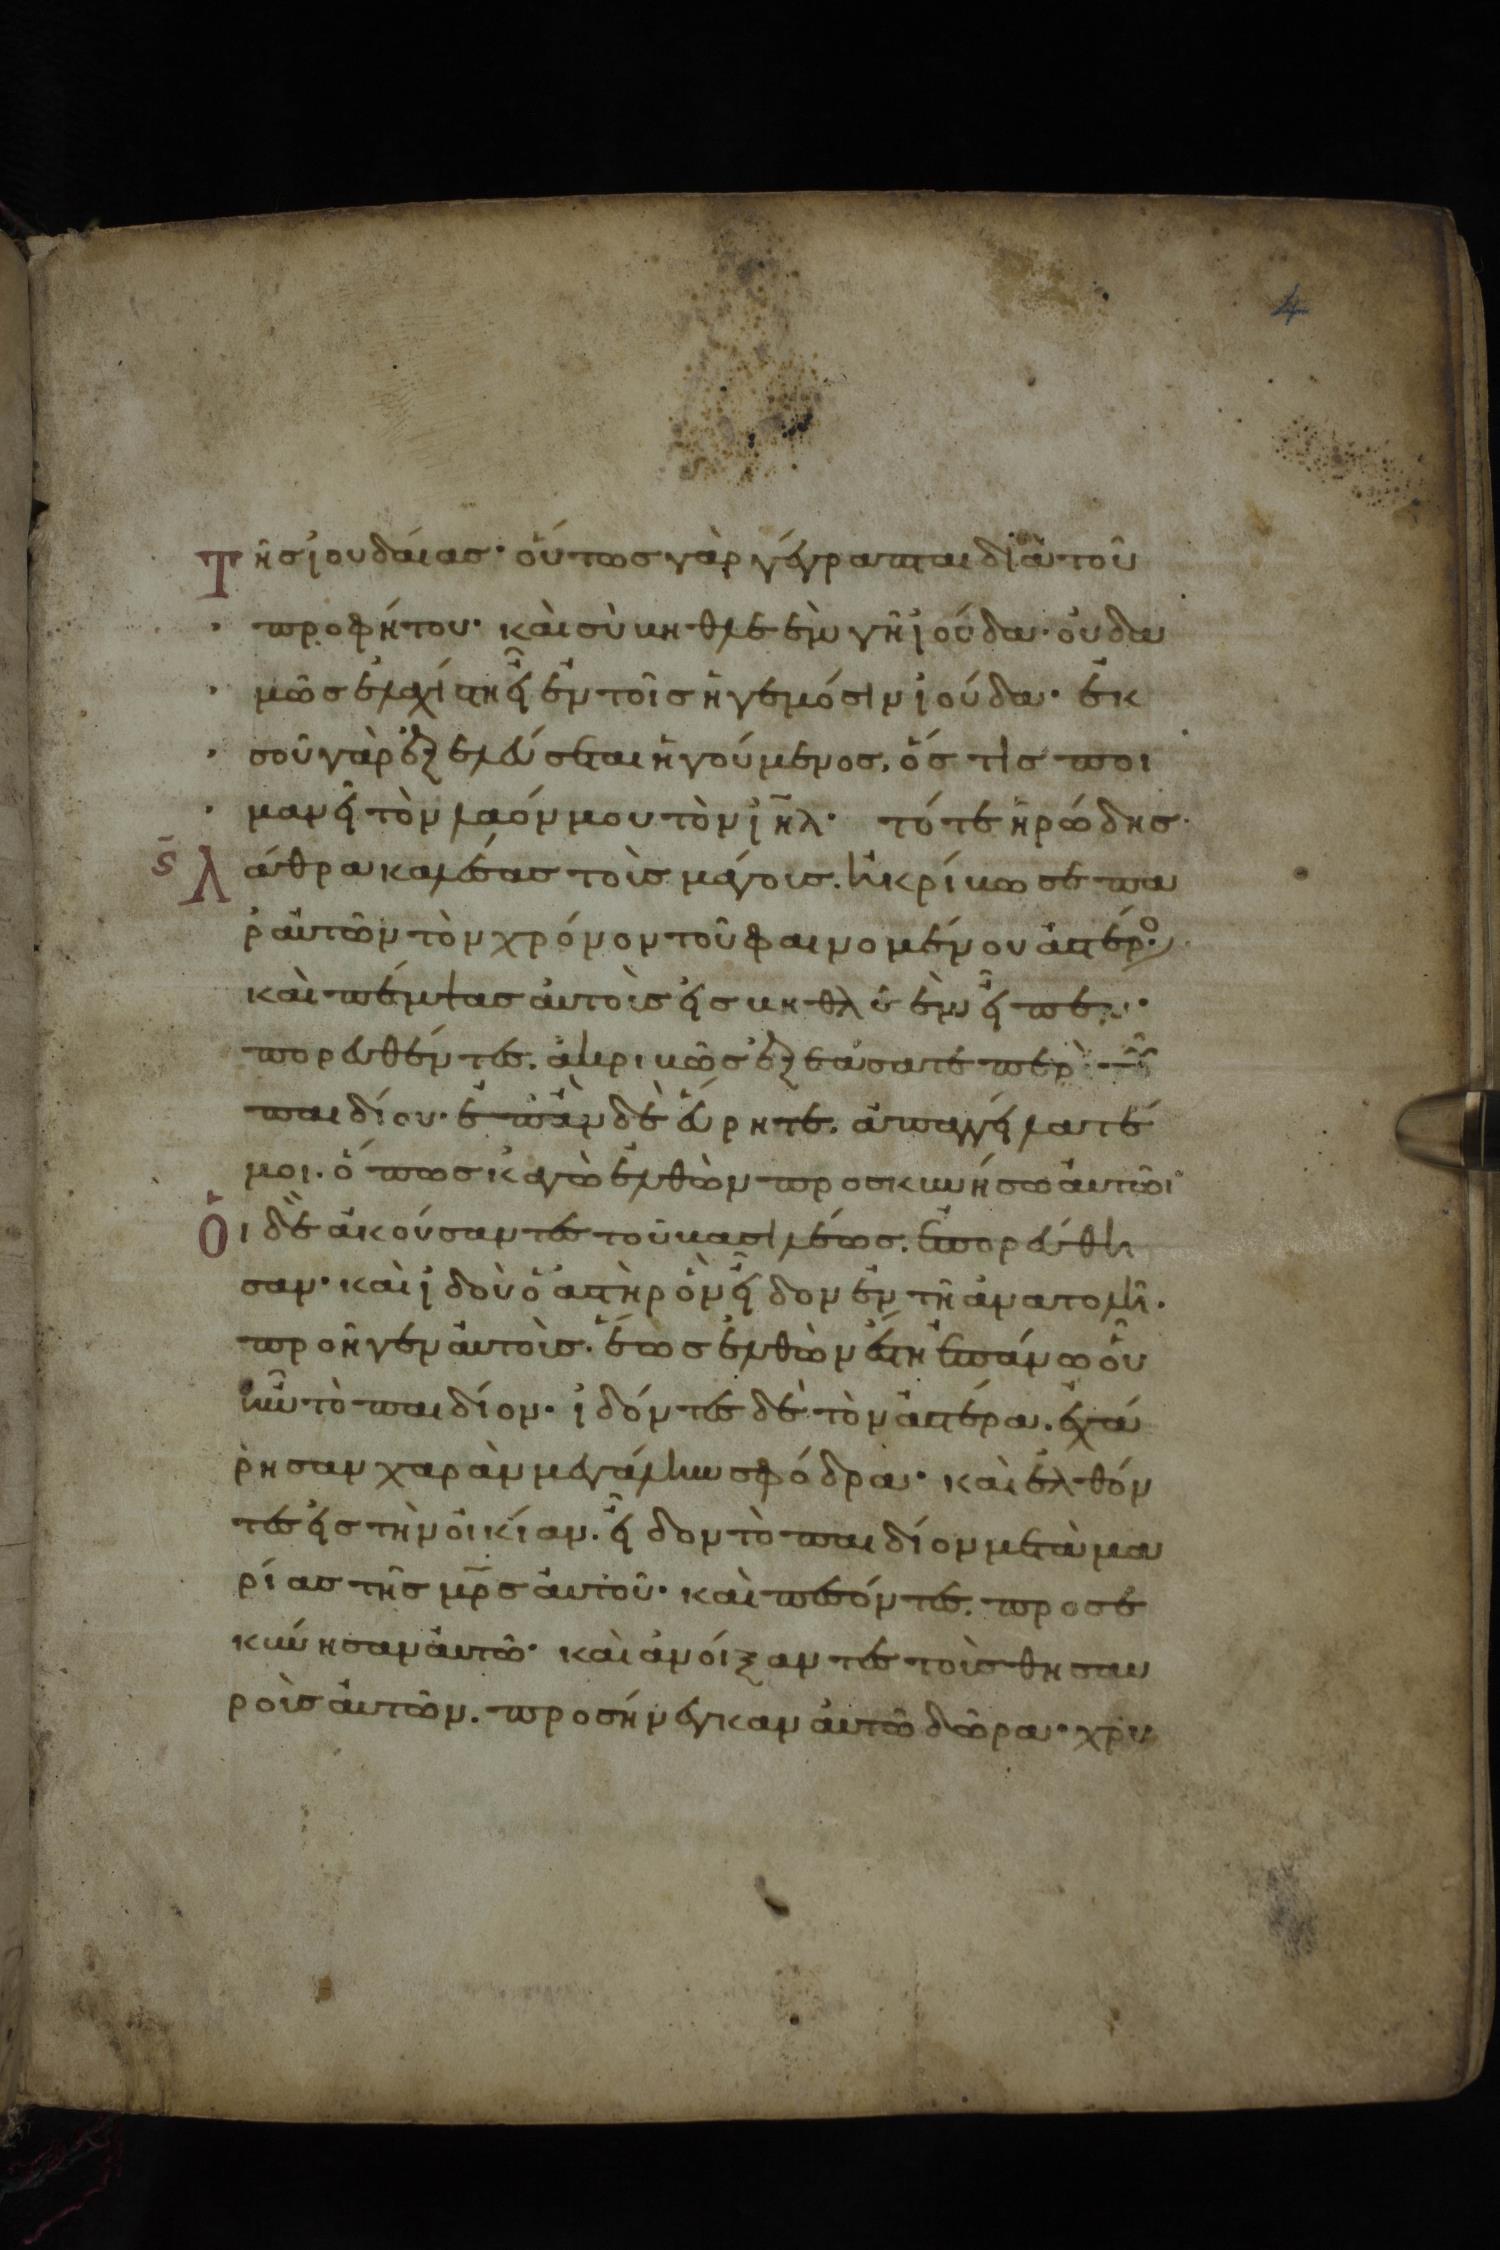 4
Τῆσ ἰουδαίασ· οὕτωσ γὰρ γέγραπται διὰ τοῦ
προφήτου· καὶ σὺ βηθλεὲμ γῆ ἰούδα· οὐδα
μῶσ ἐλαχίστη εἶ ἐν τοῖσ ἡγεμόσιν ἰούδα· ἐκ
σοῦ γὰρ ἐξελεύσεται ἡγούμενοσ, ὅστισ ποι
μανεῖ τὸν λαόν μου τὸν ἰη̅λ· τότε ἡρώδησ
ς̅ Λάθρα καλέσασ τοὺσ μάγουσ. ἠκρίβωσε πα
ῤ αὐτῶν τὸν χρόνον τοῦ φαινομένου ἀστέροσ·
καὶ πέμψασ αὐτοὺσ εἰσ βηθλεὲμ εἶπεν·
πορευθέντεσ. ἀκριβῶσ ἐξετάσατε περὶ τοῦ
παιδίου· ἐπὰν δὲ εὕρητε. ἀπαγγείλατέ
μοι. ὅπωσ κἀγὼ ἐλθὼν προσκυνήσω αὐτῶι
Οἱ δὲ ἀκούσαντεσ τοῦ βασιλέωσ. ἐπορεύθη
σαν· καὶ ἰδοὺ ὁ ἀστὴρ ὃν εἶδον ἐν τῆ ἀνατολῆ.
προῆγεν αὐτοὺσ. ἕωσ ἐλθὼν ἔστη ἐπάνω οὗ
ἦν τὸ παιδίον· ἰδόντεσ δὲ τὸν ἀστέρα. ἐχά
ρησαν χαρὰν μεγάλην σφόδρα· καὶ ἐλθόν
τεσ εἰσ τὴν οἰκίαν. εἶδον τὸ παιδίον μετὰ μα
ρίασ τῆσ μρ̅σ αὐτοῦ· καὶ πεσόντεσ. προσε
κύνησαν αὐτῶ· καὶ ἀνοίξαντεσ τοὺσ θησαυ
ροὺσ αὐτῶν. προσήνεγκαν αὐτῶ δῶρα· χρυ